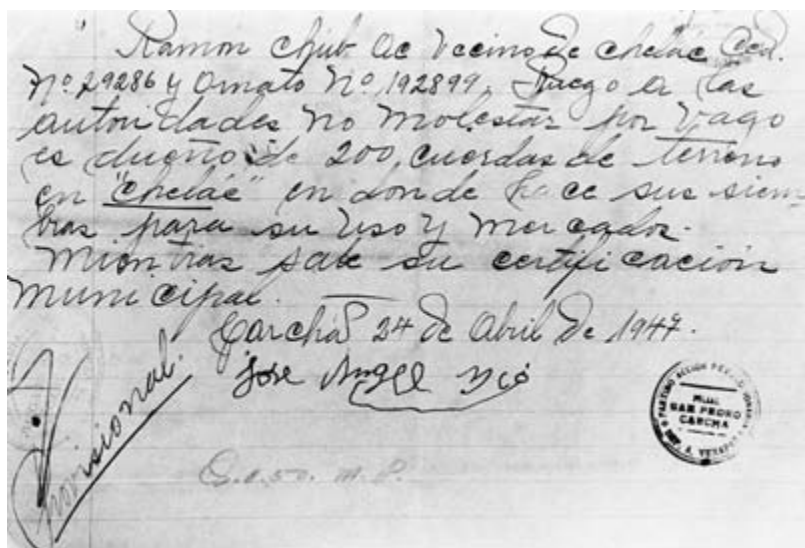 Ramon Chub Ac Vecino de chelac Ced.
Nº 29286 y Ornato Nº 192899, Ruego a las
autoridades no molestar por vago
es dueño de 200, cuerdas de terreno
en "chelac" en donde hace sus siem-
bras para su uso y mercados.
mientras sale su certificación
municipal.
Carchá 24 de Abril de 1947.
José Angel Icó
Provisional.
PARTIDO ACCION
SAN PEDRO
CARCHA
A. VERAPAZ